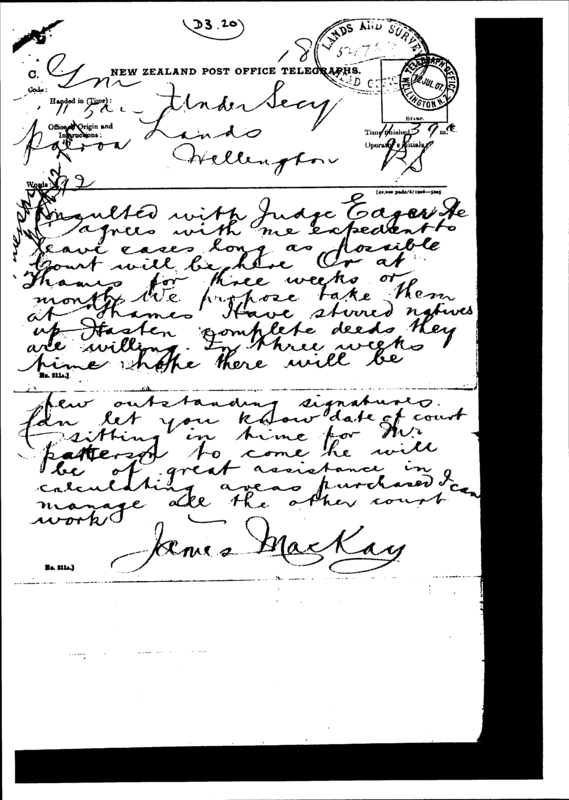 (D3.20)
LANDS AND SURVEY
HEAD OFFICE
18
C. Gm
NEW ZEALAND POST OFFICE TELEGRAPHS.
TELEGRAPH OFFICE
12 JUL 07
WELLINGTON N.Z.
Code:
Handed in (Time):
Under Secy
Stamp.
Office of Origin and
Instructions:
Paeroa
Lands
Wellington
Time finished:
Operator's Initials:
Words: 92
Consulted with Judge Edger He
agrees with me expedient to
leave cases long as possible
Court will be here Or at
Thames for three weeks or
month We propose take them
at Thames Have stirred natives
up Hasten complete deeds they
are willing. In three weeks
time hope there will be
No. 211a.]
few outstanding signatures.
Can let you know date of court
sitting in time for Mr
patterson to come he will
be of great assistance in
calculating areas purchased I can
manage all the other court
work
James MacKay
No. 211a.]